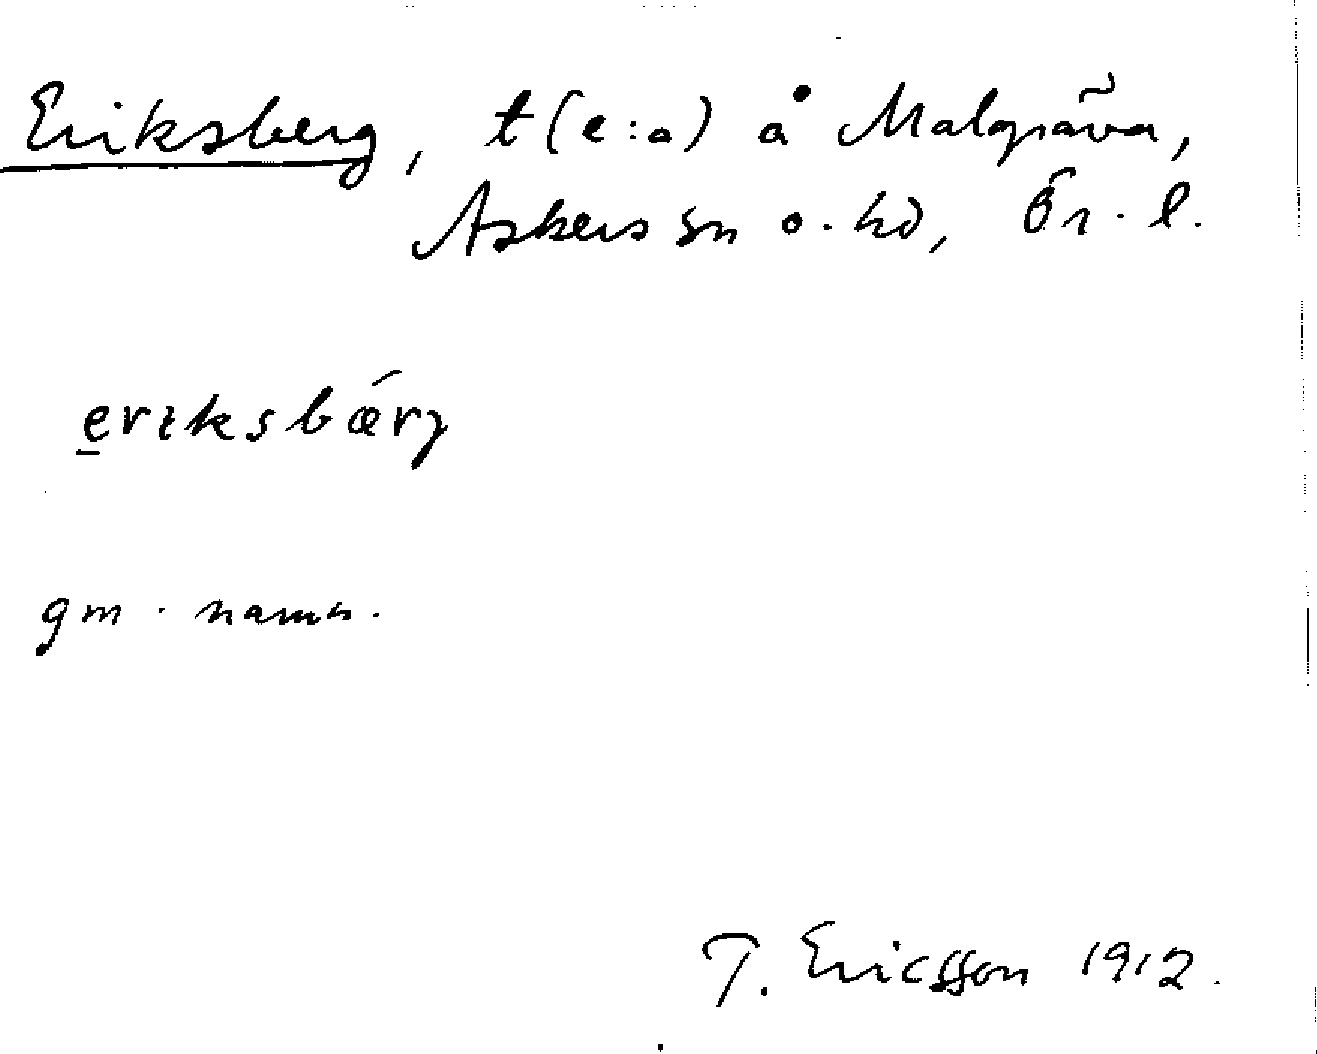 Eriksberg, t(e:a) å Malgräva,
Askers sn o. hd, Ör. l.
eriksbǽrj
gm. namn.
T. Ericsson 1912.